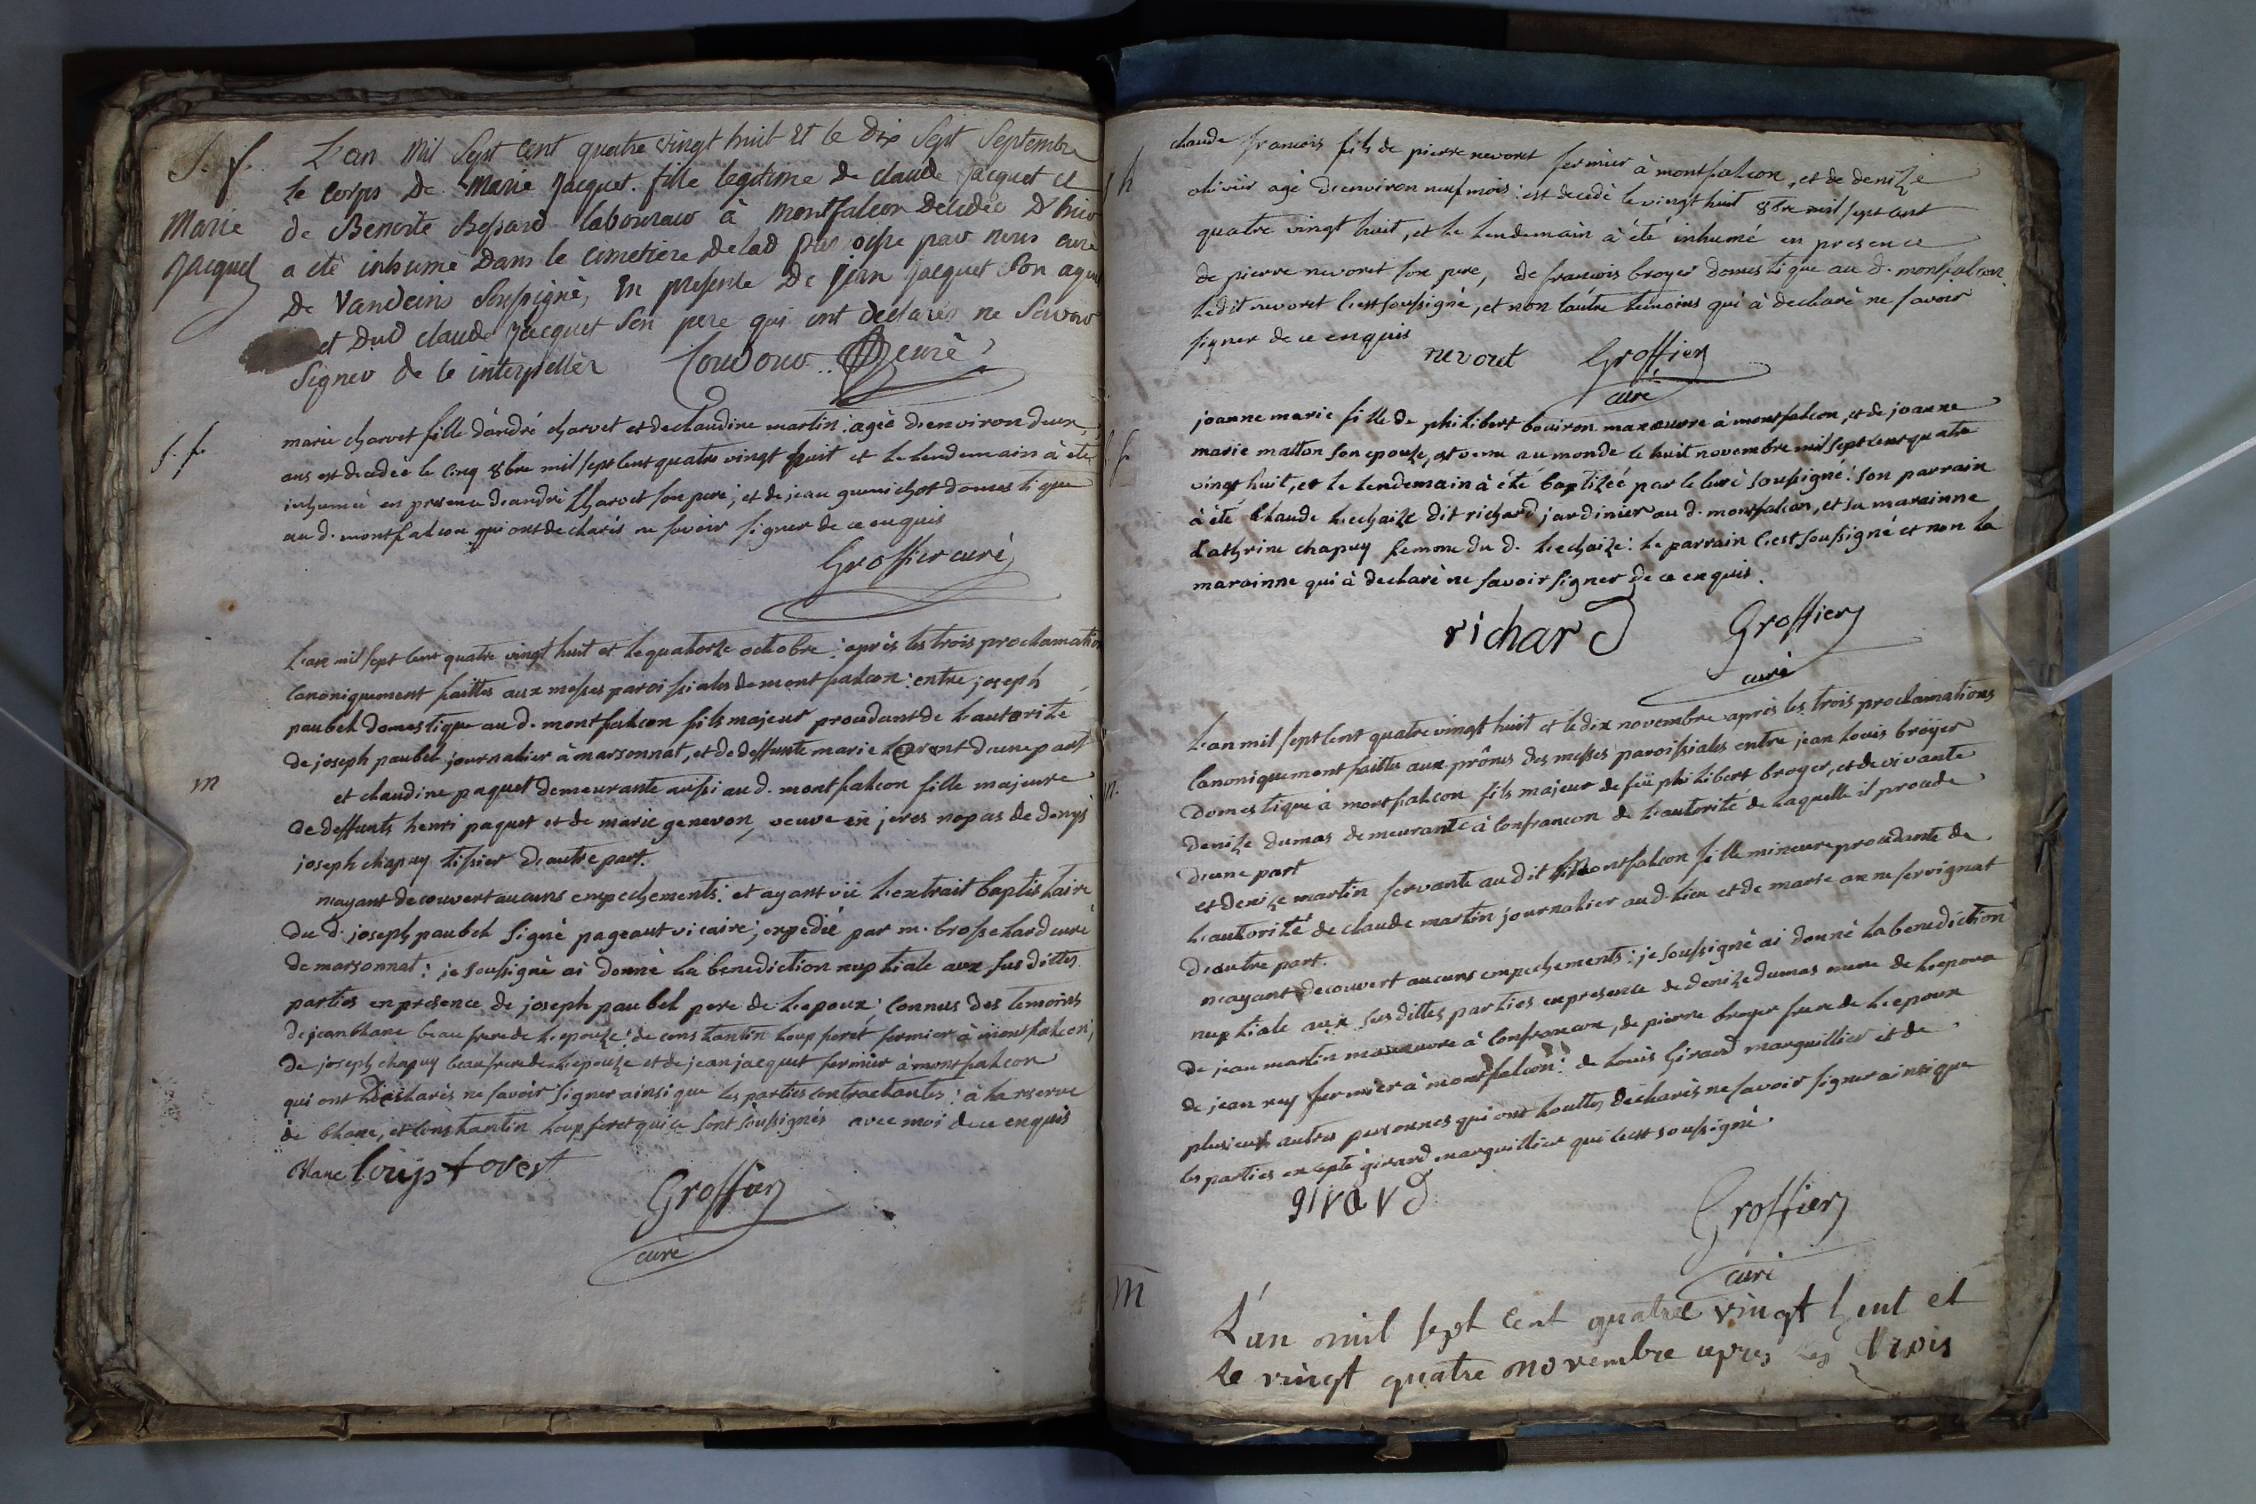 S. f.
Marie
Jacquet
L'an Mil Sept cent quatre vingt huit et le Dix Sept Septembre
le corps De Marie Jacquet fille legitime de claude Jacquet et
de Benoite Bessard laboureur à montfalcon décédée D'hier
a été inhumé Dans le cimetière de lad par nous curé
De Vandeins Soussigné, En presence De jean jacquet Son
et Dud claude Jacquet Son pere qui ont declarés ne Scavoir
Signer de ce interpellés curé
S. f.
marie charvet fille d'andré charvet et de claudine martin agée d'environ deux
ans est decedée le cinq 8bre mil sept cent quatre vingt huit et le lendemain à été
inhumée en presence d'andré Charvet son pere, et de jean guenichot domestique
au d. montfalcon qui ont declarés ne savoir signer de ce enquis
Groffier curé
m
L'an mil sept cent quatre vingt huit et le quatorze octobre : après les trois proclamation
canoniquement faittes aux messes paroissiales de montfalcon : entre joseph
paubel domestique au d. montfalcon fils majeur procedant de l'autorité
de joseph paubel journalier à marsonnat, et de deffunte marie d'une part
et claudine paquet demeurante aussi au d. montfalcon fille majeure
de deffunts henri paquet et de marie genevon, veuve en de denys
joseph chapuy tissier d'autre part.
n'ayant decouvert aucuns empechements : et ayant vü l'extrait baptistaire
du d. joseph paubel signé pageaut vicaire, expedié par m. brossehard curé
de marsonnat : je soussigné ai donné la benediction nuptiale aux susdittes
parties en presence de joseph paubel pere de l'epoux ; connus des temoins
de jean blanc beau frere de l'epouze : de constantin loup foret fermier à montfalcon ;
de joseph chapuy beaufrere de l'epouze et de jean jacquet fermier à montfalcon
qui ont declarés ne savoir signer ainsi que les parties contractantes : à la reserve
de blanc, et constantin loup foret qui ce sont soussignés avec moi de ce enquis
Blanc loup forest
Groffier
curé
claude francois fils de pierre nevoret fermier à montfalcon, et de denize
olivier agé d'environ neuf mois : est decedé le vingt huit 8bre mil sept cent
quatre vingt huit, et le lendemain à été inhumé en presence
de pierre nevoret son pere, de francois broyer domestique au d. montfalcon.
ledit nevoret c'est soussigné, et non l'autre temoins qui à declaré ne savoir
signer de ce enquis
nevoret Groffier
curé
f
joanne marie fille de philibert bouiron manœuvre à montfalcon, et de joanne
marie matton son epouze, est venu au monde le huit novembre mil sept cent quatre
vingt huit, et le lendemain à été baptizée par le curé soussigné : son parrain
à été claude lechaize dit richard jardinier au d. montfalcon, et sa marainne
Cathrine chapuy femme du d. lechaize : le parrain c'est soussigné et non la
marainne qui à declaré ne savoir signer de ce enquis.
richard Groffier
curé
m.
L'an mil sept cent quatre vingt huit et le dix novembre après les trois proclamations
canoniquement faittes aux prônes des messes paroissiales entre jean louis bröyer
domestique à montfalcon fils majeur de feü philibert broyer, et de vivante
denize dumas demeurante à confrancon de l'autorité de laquelle il procede
d'une part
et denize martin servante au dit montfalcon fille mineure procedante de
l'autorité de claude martin journalier au d. lieu et de marie anne servignat
d'autre part.
n'ayant decouvert aucuns empechements : je soussigné ai donné la benediction
nuptiale aux susdittes parties en presence de denize dumas mere de l'epoux
de jean martin manœuvre à confrancon, de pierre broyer frere de l'epoux
de jean rey fermier à montfalcon : de louis Girard marguillier et de
plusieurs autres personnes qui ont touttes declarés ne savoir signer ainsi que
les parties excepté girard marguillier qui c'est soussigné.
girard
Groffier
curé
M
L'an mil sept Cent quatre vingt huit et
le vingt quatre novembre apres les trois